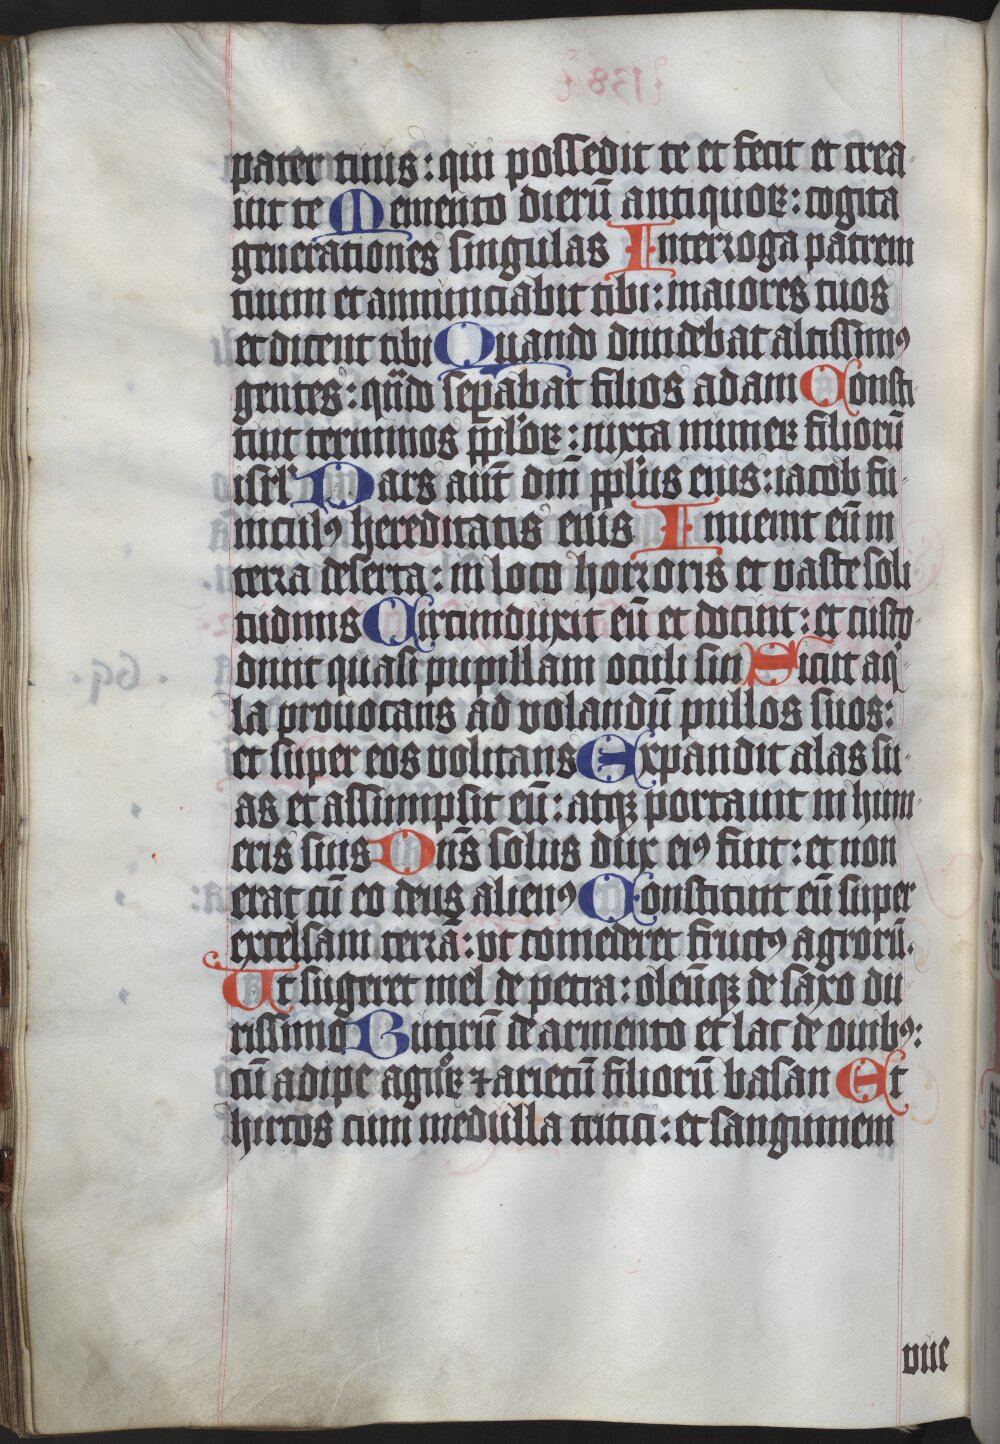 pater tuus: qui possedit te et fecit et crea-
uit te Memento dierū antiquoꝝ: cogita
generationes singulas Interroga patrem
tuum et annunciabit tibi: maiores tuos
et dicent tibi Quando diuidebat altissimꝰ
gentes: qn̄do sepabat filios adam Consti-
tuit terminos pploꝝ: iuxta numeꝝ filiorū
isrl' Pars aut̄ dn̄i ppl'us eius: iacob fu-
niculꝰ hereditatis eius Inuenit eū in
terra deserta: in loco horroris et vaste soli-
tudinis Circumduxit eū et docuit: et custo-
diuit quasi pupillam oculi sui Sicut aq'-
la prouocans ad volandū pullos suos:
et super eos volitans Expandit alas su-
as et assumpsit eū: atqꝫ portauit in hum-
eris suis Dn̄s solus dux eiꝰ fuit: et non
erat cū eo deus alienꝰ Constituit eū super
excelsam terrā: vt comederet fructꝰ agrorū.
Ut sugeret mel de petra: oleūqꝫ de saxo du-
rissimo Butirū de armento et lac de ouibꝰ:
cū adipe agnoꝝ ⁊ arietū filiorū basan Et
hircos cum medulla tritici: et sanguinem
vue